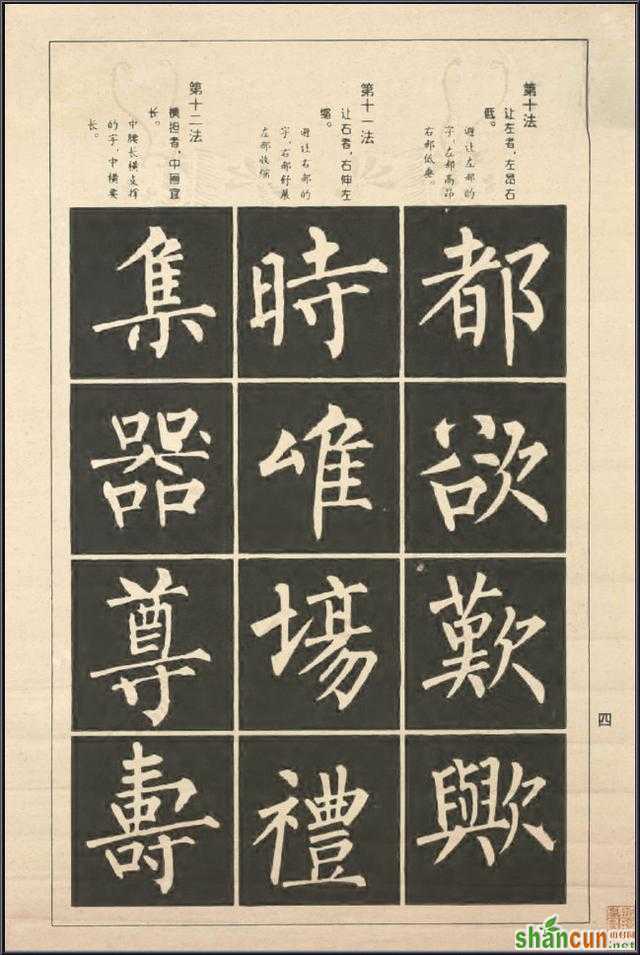 第十法
让左者，左昂右
低。
避让左部的
字，左部高昂
右部低垂。
都
欲
歎
歟
第十一法
让右者，右伸左
缩。
避让右部的
字，右部舒展
左部收缩
時
唯
場
禮
第十二法
横担者，中画宜
长。
中腰长横支撑
的字，中横要
长。
集
器
尊
壽
四
shancun
.net